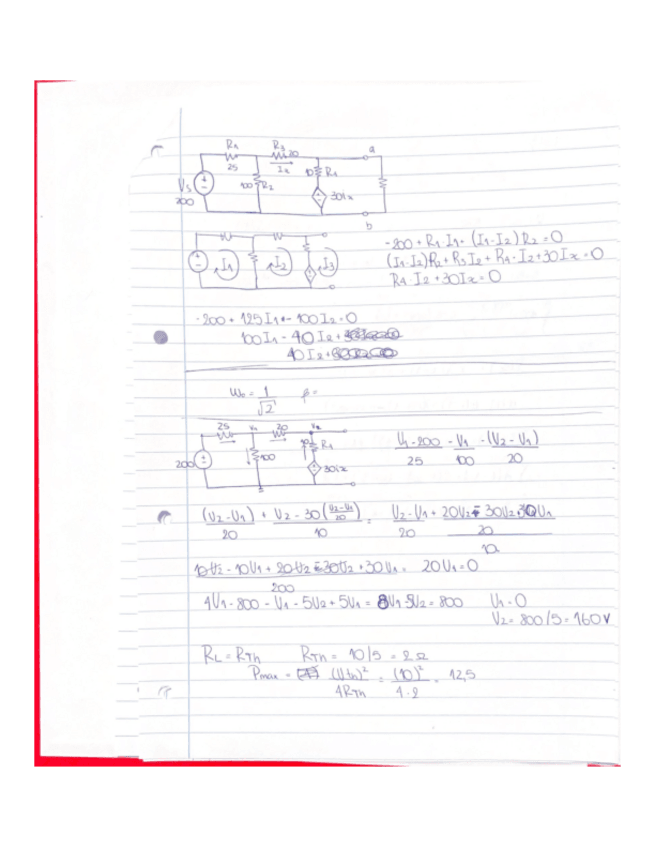 R₁ R₃ a
25 20
Ix
10 R₄
100 R₂
Vs
200
30ix
b
I₁ I₂ I₃
-200 + R₁ I₁ + (I₁-I₂) R₂ = 0
(I₁-I₂)R₂ + R₃ I₂ + R₄ I₂ + 30 Ix = 0
R₄ I₂ + 30 Ix = 0
-200 + 125 I₁ - 100 I₂ = 0
100 I₁ - 40 I₂ +
40 I₂ +
ω₀ = 1/√2 β =
25 V₁ 20 V₂
R₄
100
200
30ix
V₁-200/25 - V₁/100 - (V₂-V₁)/20
(V₂-V₁)/20 + V₂ - 30(V₂-V₁/20)/10 = V₂-V₁/20 + 20V₂ - 30V₂+30V₁/20/10
10V₂ - 10V₁ + 20V₂ - 30V₂ + 30V₁/200 = 20V₁ = 0
4V₁ - 800 - V₁ - 5V₂ + 5V₁ = 8V₁ - 5V₂ = 800 V₁ = 0
V₂ = 800/5 = 160 V
RL = RTh RTh = 10/5 = 2 Ω
Pmax = (Vth)²/4RTh = (10)²/4·2 = 12,5